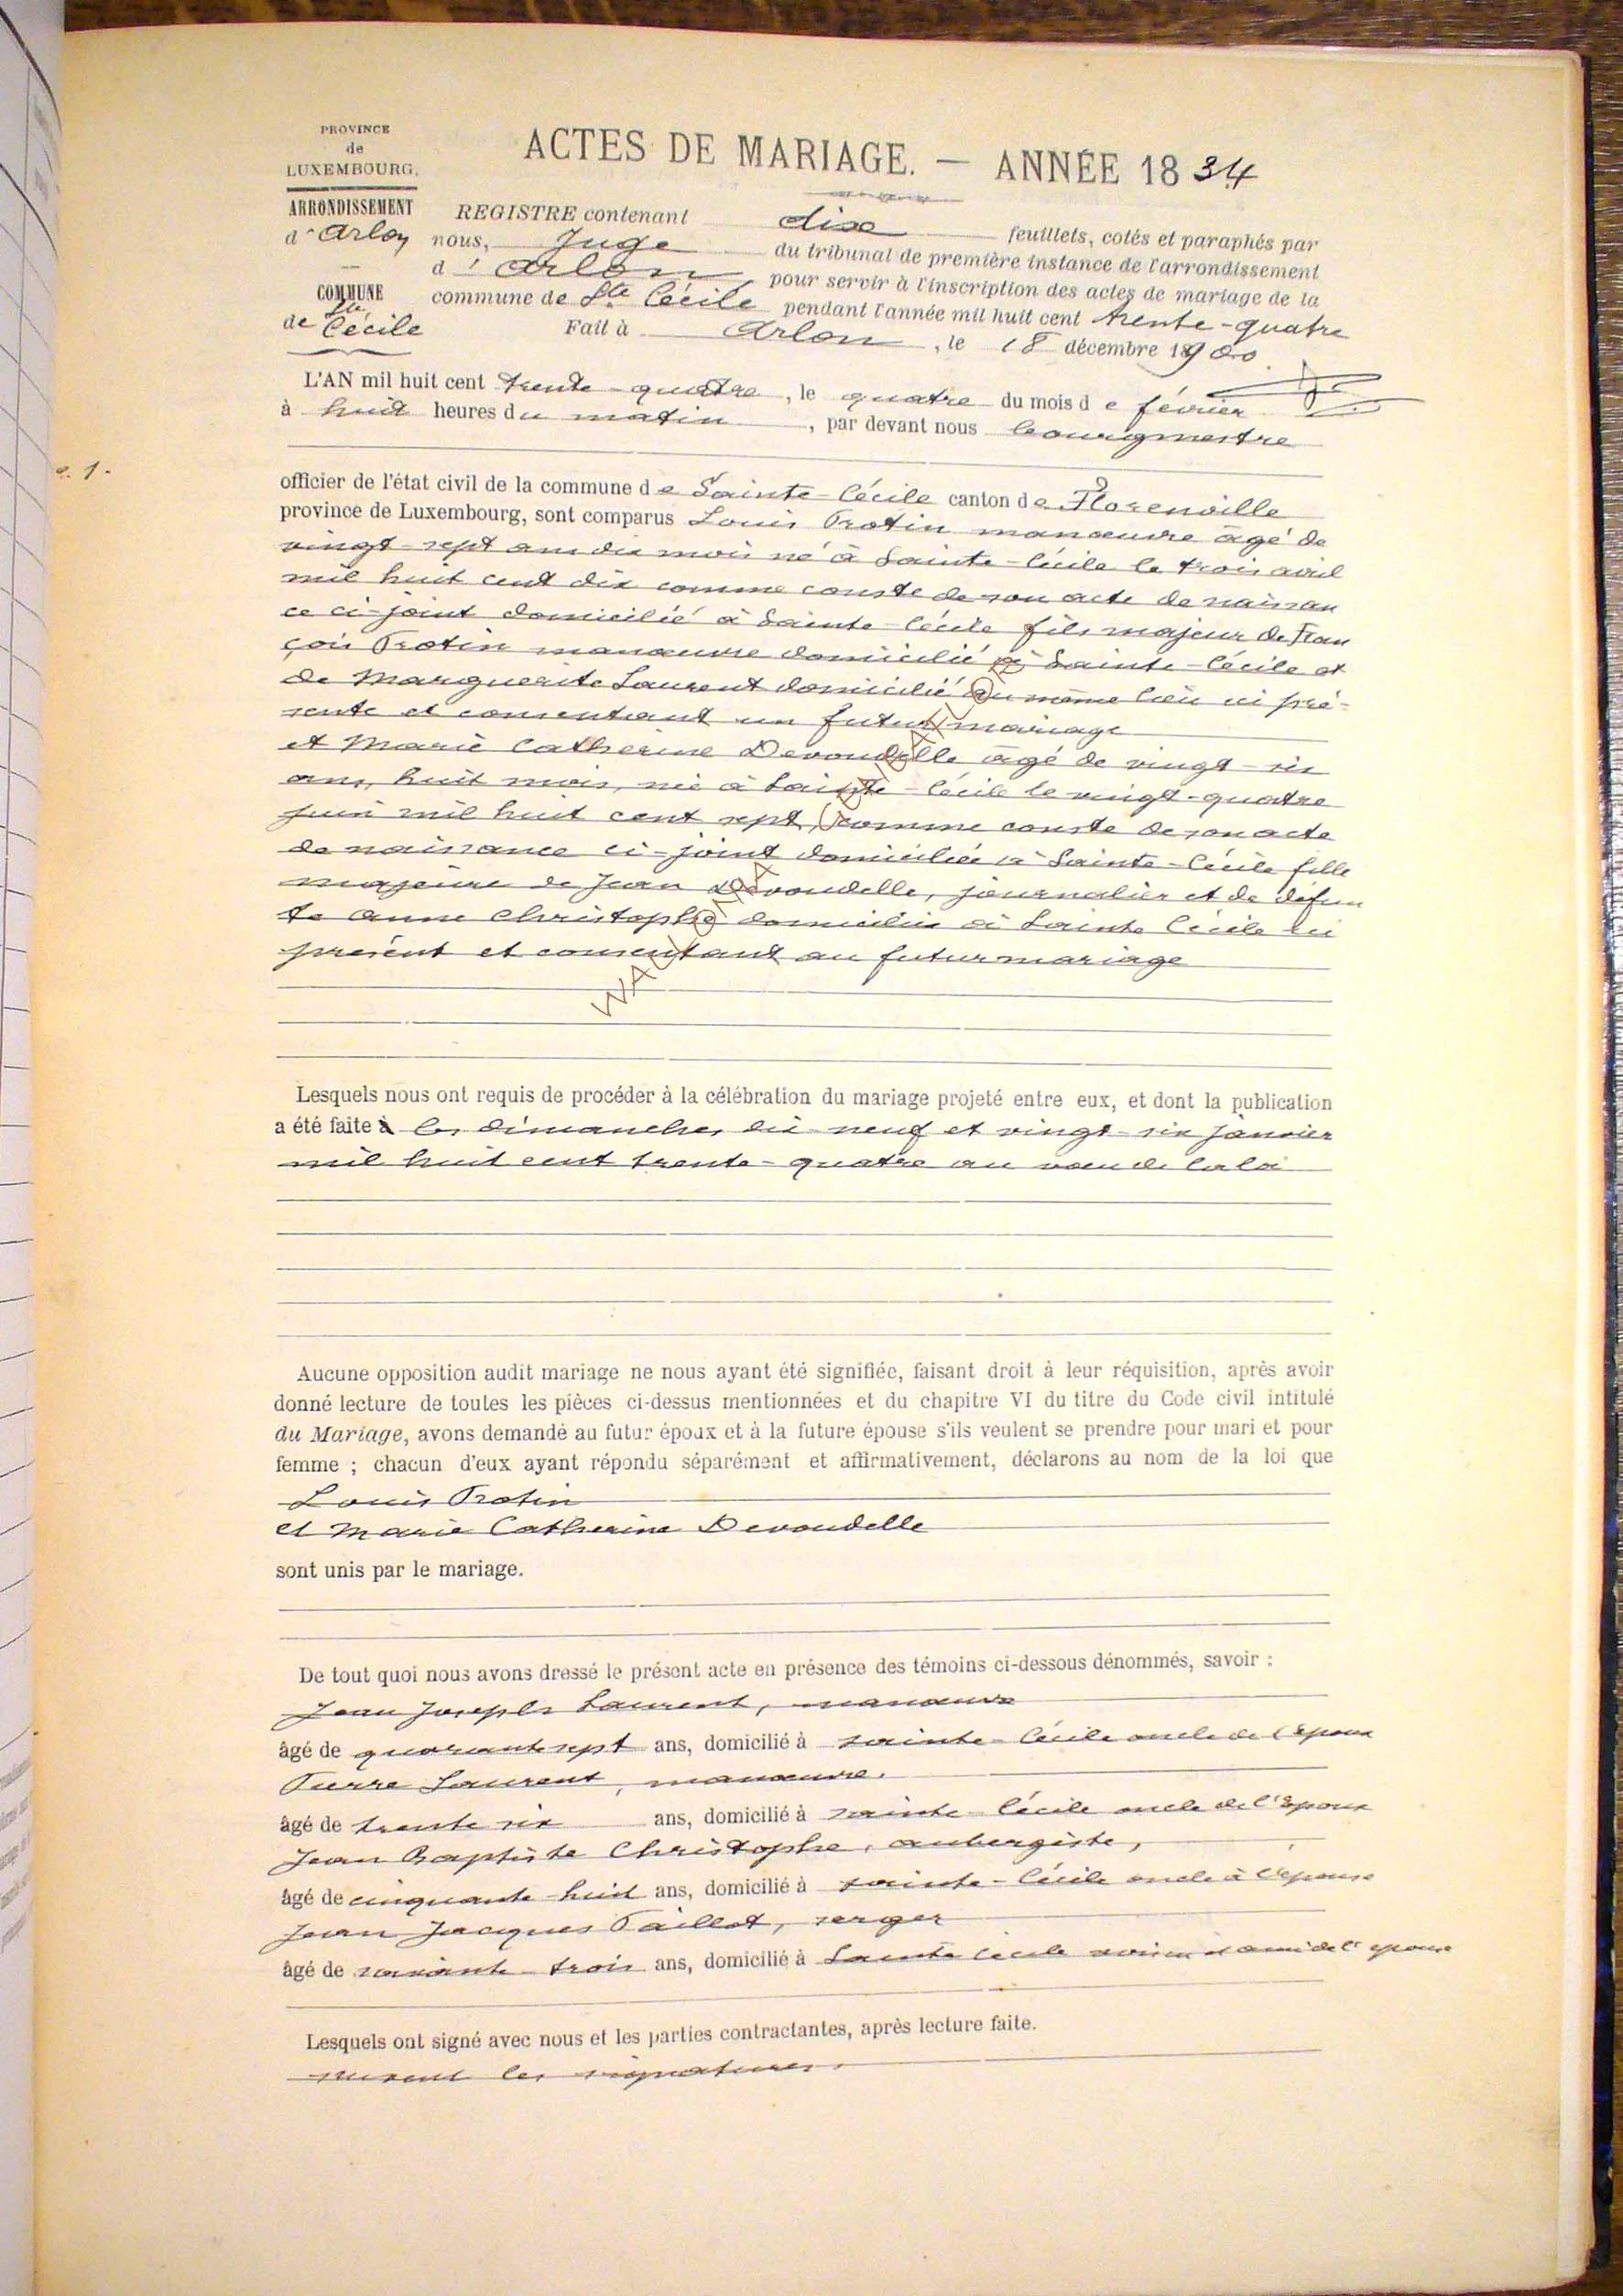 PROVINCE
de
LUXEMBOURG.
ARRONDISSEMENT
d'Arlon
COMMUNE
de Ste Cécile
ACTES DE MARIAGE. — ANNÉE 1834
REGISTRE contenant dix feuillets, cotés et paraphés par
nous, Juge du tribunal de première instance de l'arrondissement
d'Arlon pour servir à l'inscription des actes de mariage de la
commune de Ste Cécile pendant l'année mil huit cent trente-quatre
Fait à Arlon, le 18 décembre 1900
L'AN mil huit cent trente-quatre, le quatre du mois de février
à huit heures du matin, par devant nous bourgmestre
1.
officier de l'état civil de la commune de Sainte-Cécile canton de Florenville
province de Luxembourg, sont comparus Louis Protin manœuvre âgé de
vingt-sept ans dix mois né à Sainte-Cécile le trois avril
mil huit cent dix comme conste de son acte de naissan
ce ci-joint domicilié à Sainte-Cécile fils majeur de Fran
çois Protin manœuvre domicilié à Sainte-Cécile et
de Marguerite Laurent domicilié au même lieu ici pré-
sente et consentant au futur mariage
et Marie Catherine Devoudelle âgé de vingt-six
ans, huit mois, née à Sainte-Cécile le vingt-quatre
juin mil huit cent sept, comme conste de son acte
de naissance ci-joint domiciliée à Sainte-Cécile fille
majeure de Jean Devoudelle, journalier et de défun
te Anne Christophe domiciliée à Sainte Cécile ici
présent et consentant au futur mariage
Lesquels nous ont requis de procéder à la célébration du mariage projeté entre eux, et dont la publication
a été faite à les dimanches dix-neuf et vingt-six janvier
mil huit cent trente-quatre au vœu de la loi
Aucune opposition audit mariage ne nous ayant été signifiée, faisant droit à leur réquisition, après avoir
donné lecture de toutes les pièces ci-dessus mentionnées et du chapitre VI du titre du Code civil intitulé
du Mariage, avons demandé au futur époux et à la future épouse s'ils veulent se prendre pour mari et pour
femme ; chacun d'eux ayant répondu séparément et affirmativement, déclarons au nom de la loi que
Louis Protin
et Marie Catherine Devoudelle
sont unis par le mariage.
De tout quoi nous avons dressé le présent acte en présence des témoins ci-dessous dénommés, savoir :
Jean Joseph Laurent, manœuvre
âgé de quarante sept ans, domicilié à Sainte-Cécile oncle de l'époux
Pierre Laurent, manœuvre.
âgé de trente six ans, domicilié à Sainte-Cécile oncle de l'époux
Jean Baptiste Christophe, aubergiste,
âgé de cinquante-huit ans, domicilié à Sainte-Cécile oncle à l'épouse
Jean Jacques Taillot, serger
âgé de soixante-trois ans, domicilié à Sainte Cécile voisin et ami de l'épouse
Lesquels ont signé avec nous et les parties contractantes, après lecture faite.
suivent les signatures.